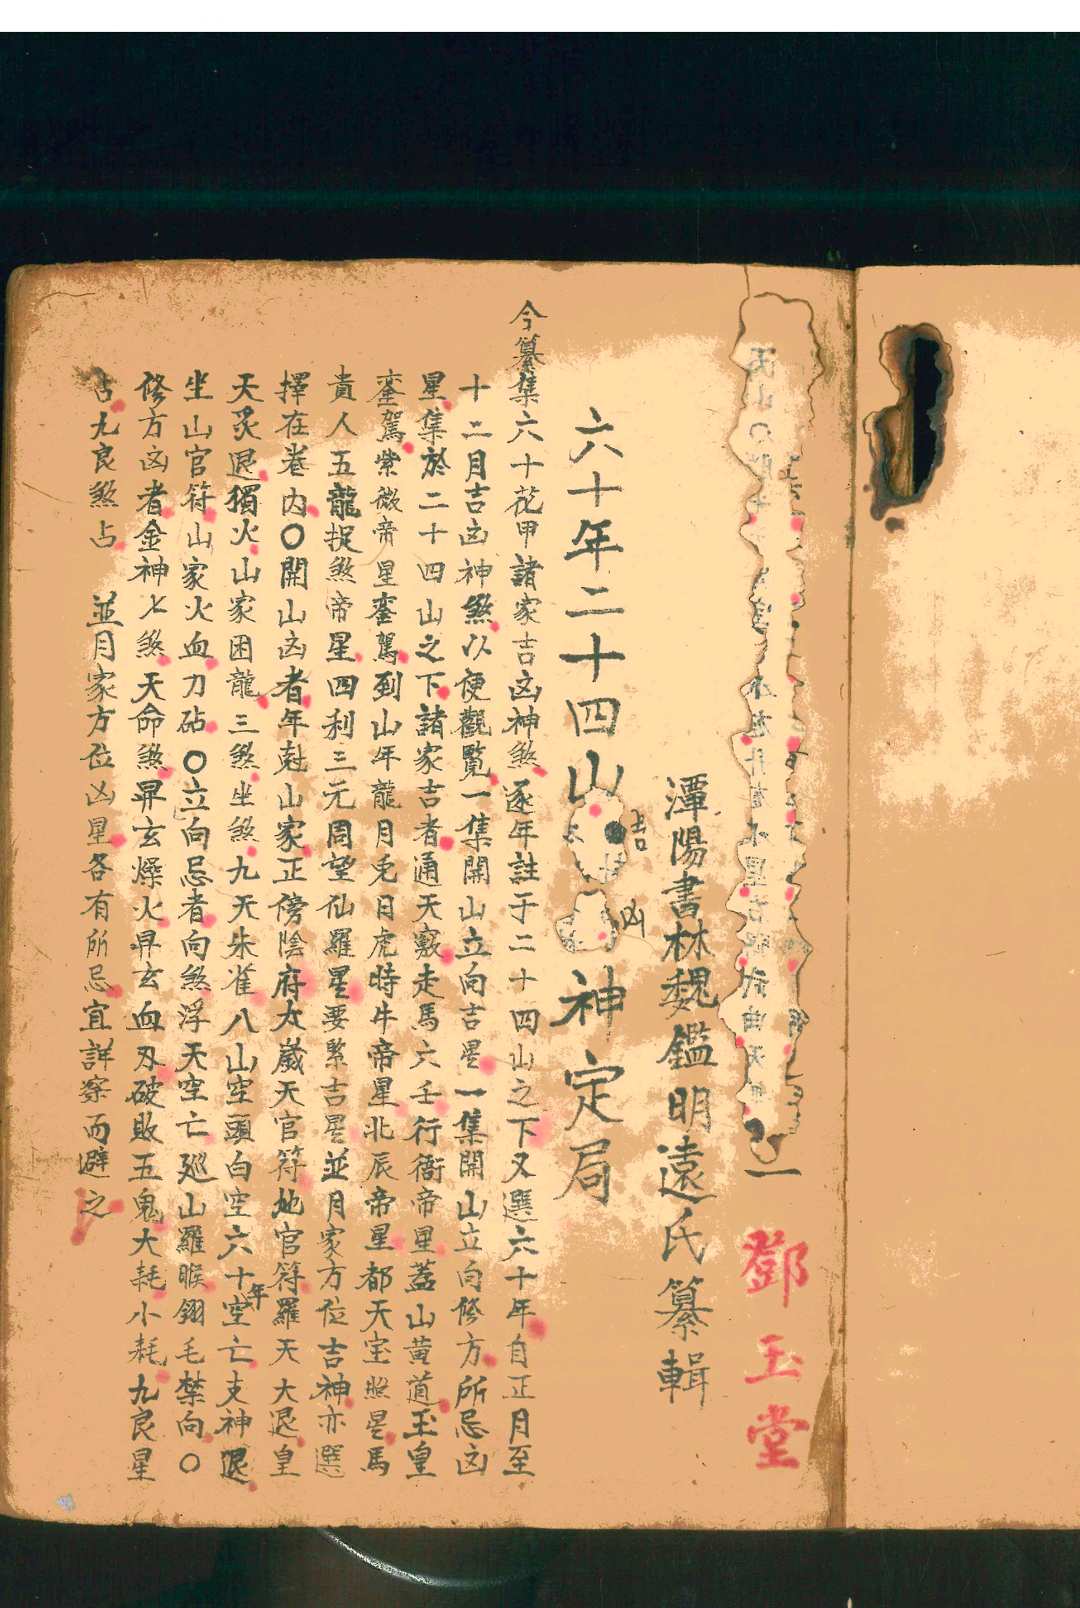 一 鄧玉堂
潭陽書林魏鑑明遠氏纂輯
六十年二十四山吉凶神定局
今纂集六十花甲諸家吉凶神煞逐年註于二十四山之下又選六十年自正月至
十二月吉凶神煞以便觀覧一集開山立向吉星一集開山立向修方所忌凶
星集於二十四山之下諸家吉者通天竅走馬六壬行衙帝星蓋山黄道玉皇
鑾駕紫微帝星鑾駕到山年龍月兎日虎時牛帝星北辰帝星都天宝照星馬
貴人五龍捉煞帝星四利三元周望仙羅星要緊吉星並月家方位吉神亦選
擇在卷内〇開山凶者年尅山家正傍陰府太歲天官符地官符羅天大退皇
天炙退獨火山家困龍三煞坐煞九天朱雀八山空頭白空六十年空亡支神退
坐山官符山家火血刀砧〇立向忌者向煞浮天空亡廵山羅睺翎毛禁向〇
修方凶者金神七煞天命煞昇玄燥火昇玄血刃破敗五鬼大耗小耗九良星
占九良煞占 並月家方位凶星各有所忌宜詳察而避之